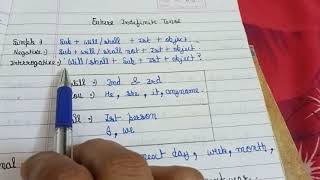 Future Indefinite Tense
Simple :) Sub + will/shall + Ist + object.
Negative :) Sub + will/shall not + Ist + object.
Interrogative :) Will/shall + Sub + Ist + object ?
will : 2nd & 3rd
He, she, it, anyname.
Ist person
I, we
next day, week, month,
year.